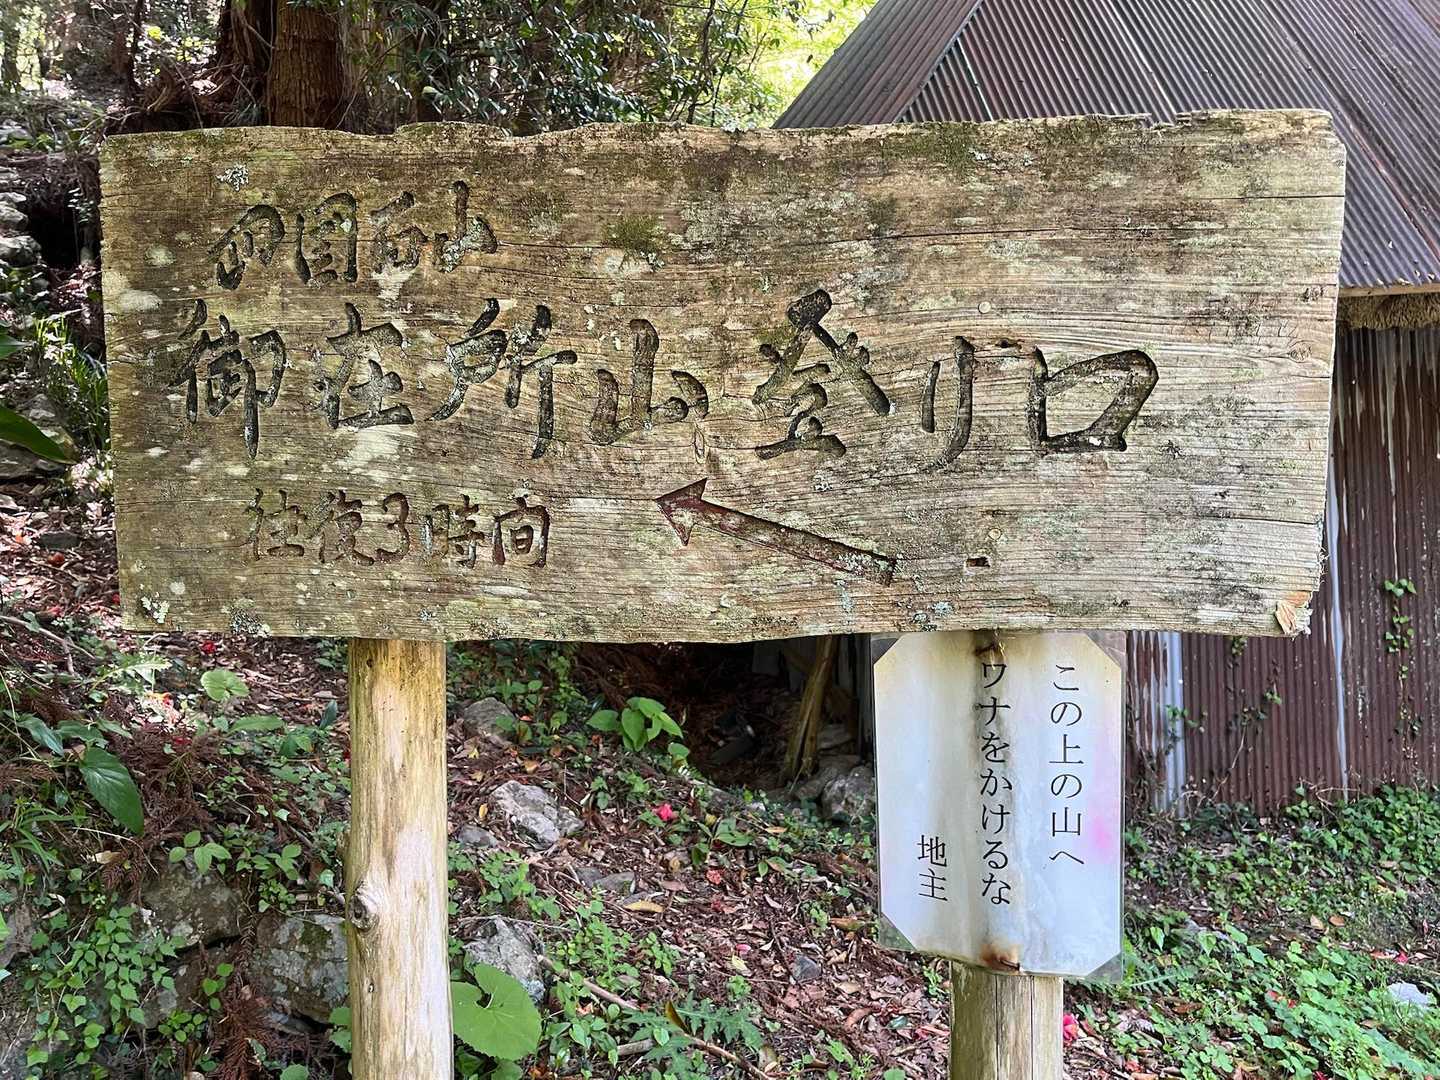 四国百山
御在所山登り口
往復3時間
この上の山へ
ワナをかけるな
地主